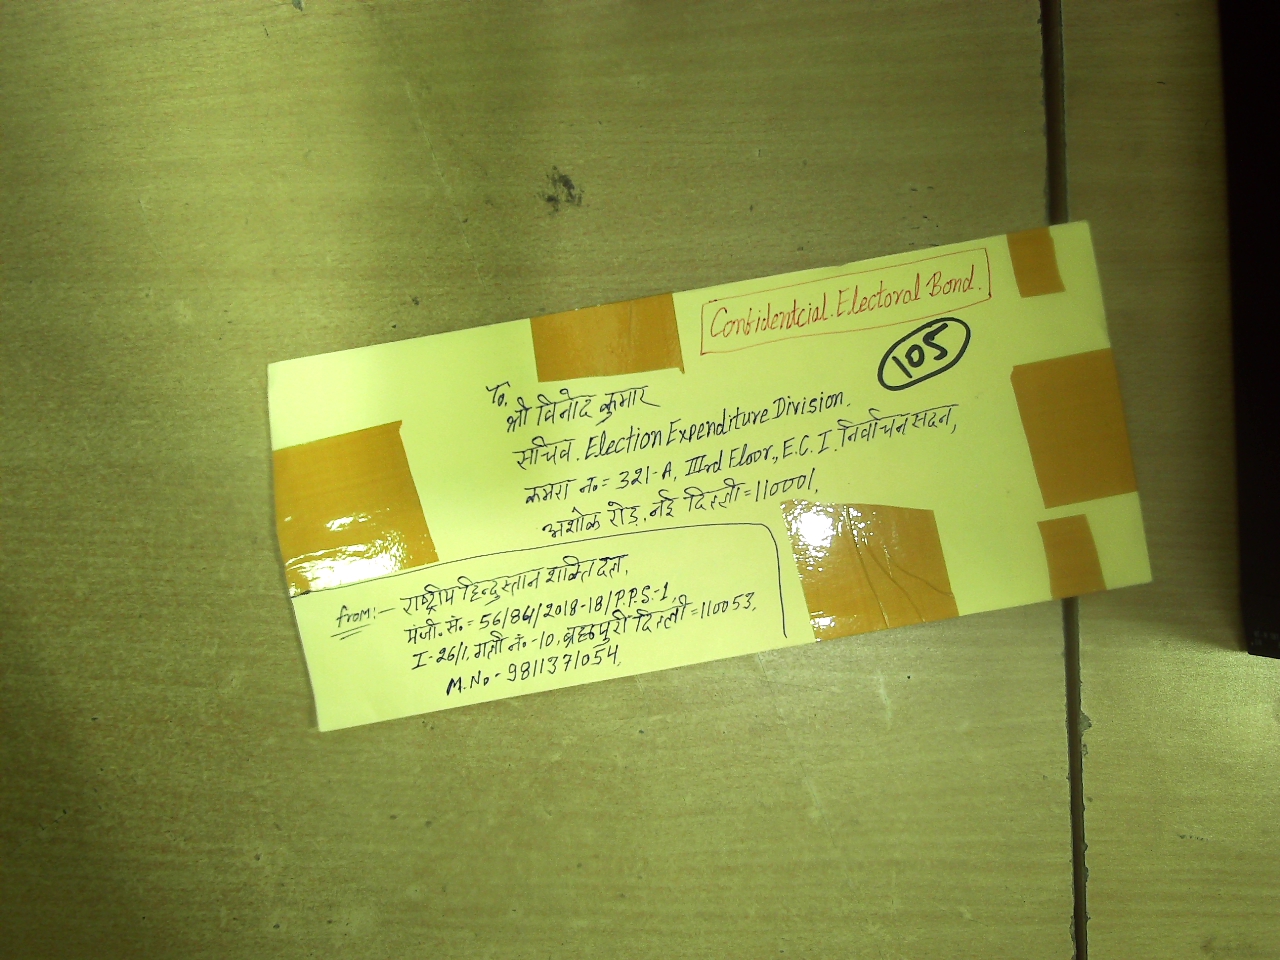 Confidentcial. Electoral Bond.
105
To,
श्री विनोद कुमार
सचिव. Election Expenditure Division.
कमरा नं॰= 321-A, IIIrd Floor, E.C.I. निर्वाचन सदन,
अशोक रोड़, नई दिल्ली=110001,
from:- राष्ट्रीय हिन्दुस्तान शक्ति दल,
पंजी.सं.= 56/84/2018-18/P.P.S.-1,
I-26/1, गली नं.-10, ब्रह्मपुरी दिल्ली=110053,
M.No- 9811371054,